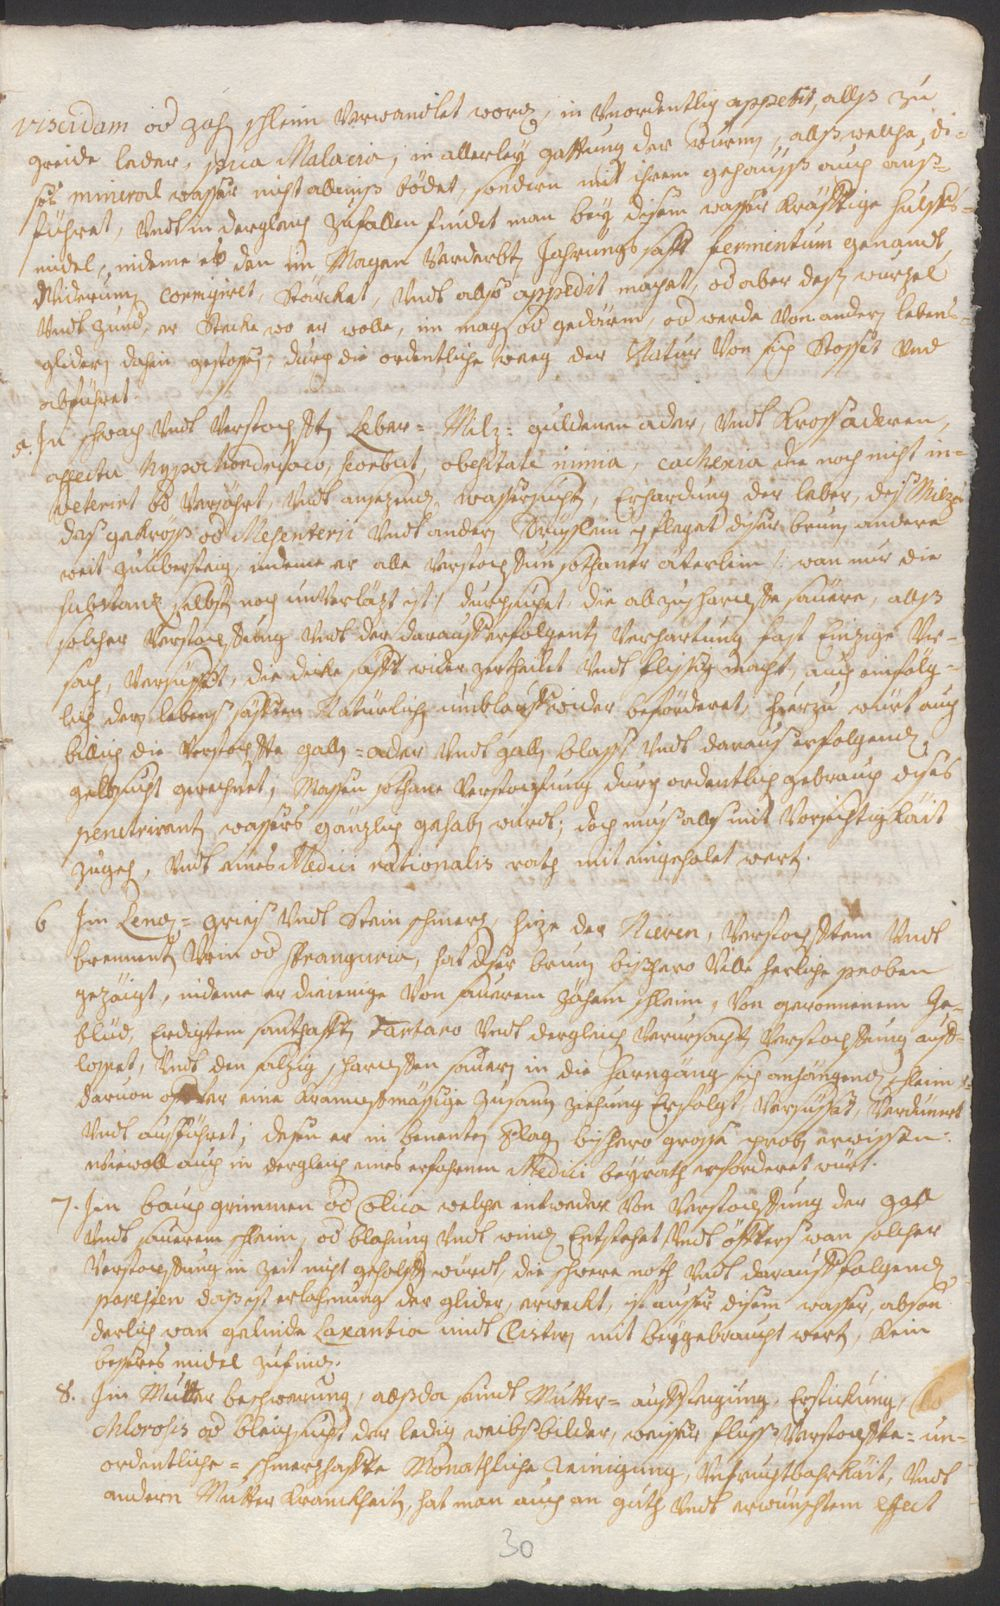 viscidam od zäh schleim verwandlet word, in unordentlich appetit, alß zu
greide leder, pica Malacia, in allerley gattung der würm, alß welche di-
ses mineral wasser nicht allein tödet, sondern mit ihrem gehäuß auch auß-
führet, undt in dergleich zufällen findet man bey disem wasser kräfftige hülffs-
midel, indeme es den im Magen verderbt Jahrungs safft fermentum genandt,
widerumb corrigiret, stärcket, undt also appedit machet, od aber deß wurzel
undt zund, er stecke wo er wolle, im mag od gedärm, od werde von andern lebens-
glidern dahin gestossen, durch die ordentliche weeg der Natur von sich stosset und
abführet.
5. In schwach undt verstopfften Leber= Milz= guldenen ader, undt Kroß äderen,
affectu Hypochondriaco, scorbut, obesitate nimia, cachexia die noch nicht in-
veteriret od verjähret, undt ansezend wassersucht, Erhardung der leber, deß Milz
daß gekröß od Mesenterii undt andern Drüßlein pfleget diser brun andere
weit zuübersteig, indeme er alle verstopffung sothaner äterlein /: wan nur die
substanz selbst noch unverläzt ist :/ durchsuchet, die allzuscharpffe säuere, alß
solcher verstopffung undt der darauß erfolgent verhartung fast Einzige Ur-
sach, versüsset, die dicke säfft wider zertheilet undt flissig macht, auch einfolg-
lich den lebenß säfften Natürlich umblauff wider beförderet, hierzu würt auch
billich die verstopffte gall= ader undt gall blaß undt darauß erfolgend
gelbsucht gerechnet, Massen sothane verstopffung durch ordentlich gebrauch dises
penetrirent wassers gänzlich gehob würdt; doch muß alles mit Vorsichtigkäit
zugeh, undt eines Medici rationalis rath mit eingeholet wert.
6 Im Lend= grieß undt Stein schmerz, hize der Nieren, verstopfftem undt
brennent Urin od stranguria, hat diser brun bißhero ville herliche proben
gezäigt, indeme er dieienige von sauerem zähem schleim, von geronnenem Ge-
blüd, Erdigtem sandhafft Tartaro undt dergleich verursacht verstopffung auff-
löset, undt den salzig scharpffen sauern in die Harngäng sich anhängend schleim
daruon öffter eine krampffmässige zusam ziehung Erfolgt, versüsset, verdünert
undt ausführet; desen er in benenten plag bißhero grosse prob erwissen:
wiewoll auch in dergleich eines erfahrnen Medici beyrath erforderet würt.
7. Im bauch grimmen od Colica welche entweder von verstopffung der gall
undt sauerem schleim, od blähung undt wind Entstehet undt öffters wan solcher
verstopffung in zeit nicht geholff würdt, die schwere noth undt darauff folgend
paresien daß ist erlahmung der glider, erweckt, ist ausser disem wasser, abson
derlich wan gelinde Laxantia undt Clistir mit beygebraucht wert, kein
besseres midel zufind.
8. Im Mutter beschwerung, alßda seindt Mutter= auffsteigung, Erstickung,
chlorosis od bleichsucht der ledig weibßbilder, weisser fluß, verstopffte= un-
ordentliche= schmerzhaffte Monathliche reinigung, Unfruchtbahrkäit, undt
andern Mutter Kranckheit, hat man auch an guth undt erwünschtem effect
30